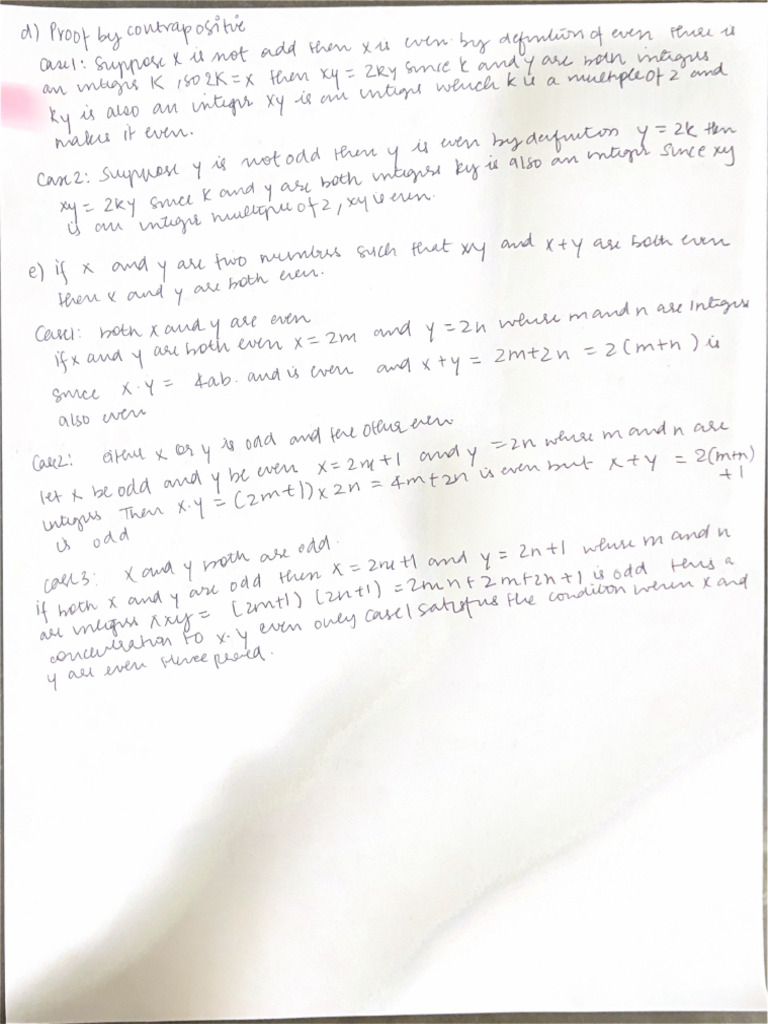 d) Proof by contrapositive
case1: Suppose x is not odd then x is even by definition of even there is
an integrs K, so 2K = x then xy = 2ky since k and y are both integrs
ky is also an integr xy is an integr which k is a multiple of 2 and
makes it even.
Case 2: Suppose y is not odd then y is even by defunition y = 2k then
xy = 2ky since k and y are both integrs ky is also an integr since xy
is an integrs multiple of 2, xy is even.
e) if x and y are two numbers such that xy and x+y are both even
then x and y are both even.
Case1: both x and y are even
if x and y are both even x = 2m and y = 2n where m and n are integrs
since x·y = 4ab. and is even and x+y = 2m+2n = 2(m+n) is
also even
Case2: either x or y is odd and the other even
let x be odd and y be even x = 2m+1 and y = 2n where m and n are
integrs Then x·y = (2m+1) x 2n = 4m+2n is even but x+y = 2(m+n)
+1
is odd
case 3: x and y both are odd.
if both x and y are odd then x = 2m+1 and y = 2n+1 where m and n
are integrs xxy = (2m+1) (2n+1) = 2mn+2m+2n+1 is odd thus a
to x·y even only case1 satisfies the condition x and
y are even